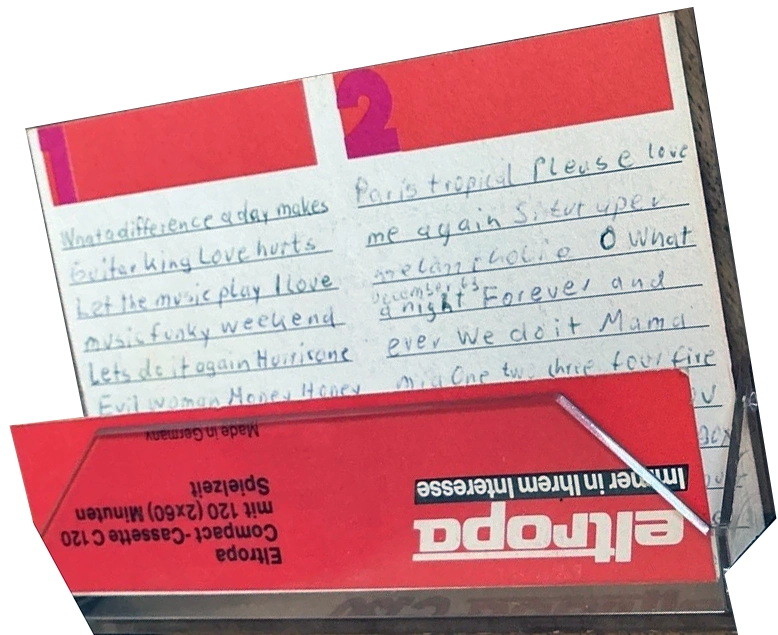 1
What a difference a day makes
Guitar king Love hurts
Let the music play I love
music funky weekend
Lets do it again Hurricane
Evil woman Money Honey
2
Paris tropical Please love
me again
O What
december 63
a night Forever and
ever We do it Mama
mia One two three four five
Made in Germany
Eltropa
Compact-Cassette C 120
mit 120 (2x60) Minuten
Spielzeit
eltropa
Immer in Ihrem Interesse